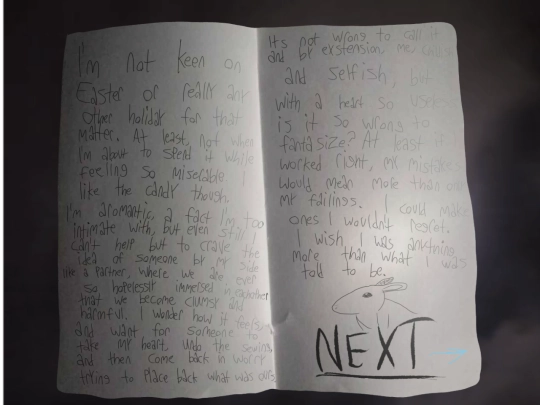 I'm not keen on
Easter or really any
other holiday for that
matter. At least, not when
I'm about to spend it while
feeling so miserable. I
like the candy though.
I'm aromantic, a fact I'm too
intimate with, but even still I
can't help but to crave the
idea of someone by my side
like a partner, where we are ever
so hopelessly immersed in eachother
that we become clumsy and
harmful. I wonder how it feels to
and want for someone to
take my heart, undo the sewing,
and then come back in worry
trying to place back what was ours.
It's not wrong to call it
and by exstension, me
and selfish, but
with a heart so
is it so wrong to
fantasize? At least if it
worked right, my mistakes
would mean more than
my failings. I could make
ones I wouldn't regret.
I wish I was anything
more than what I was
told to be.
NEXT